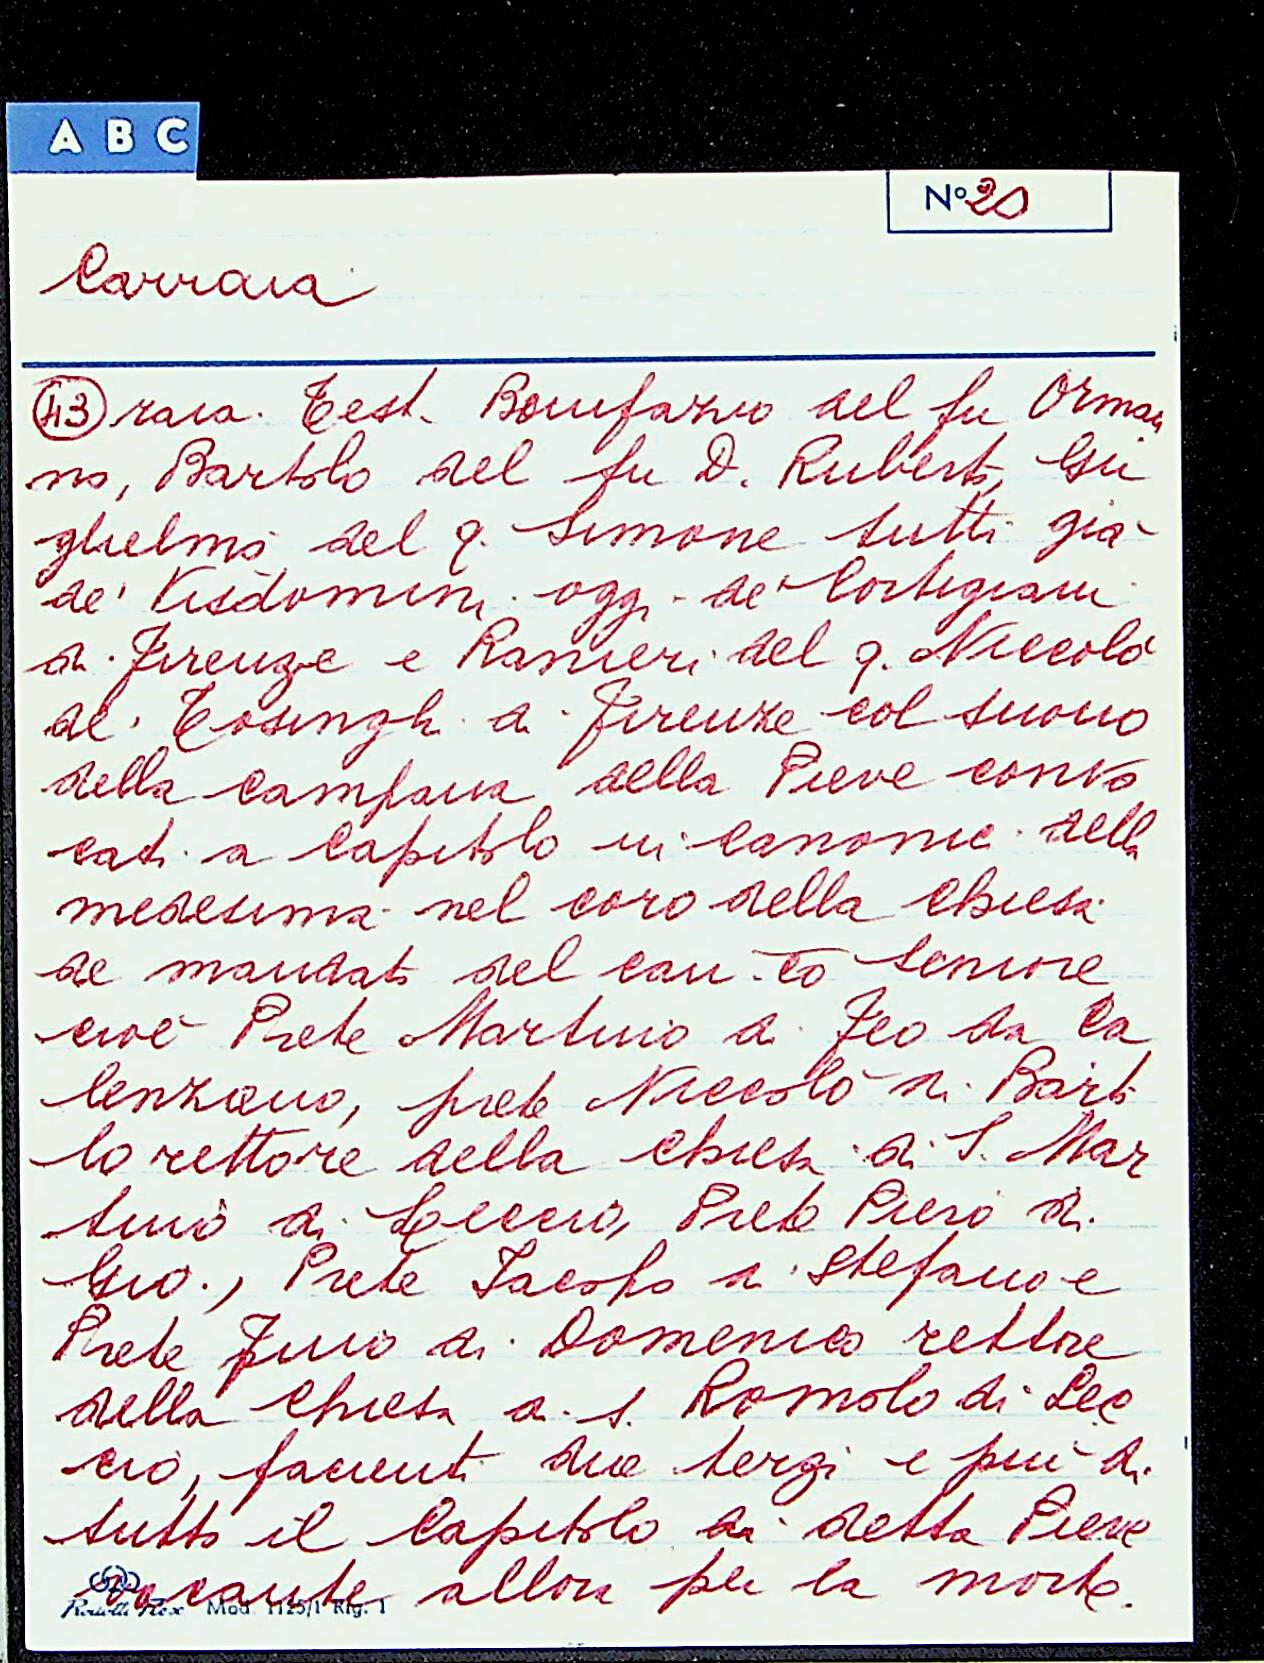 A B C
Nº 20
Carraia
43 raia. Test. Bonifazio del fu Orman
no, Bartolo del fu D. Ruberto, Gu
glielmo del q. Simone tutti già
de' Visdomini oggi de' Cortigiani
di Firenze e Ranieri del q. Niccolò
de' Tosinghi di Firenze col suono
della campana della Pieve convo
cati a Capitolo in canonic. della
medesima nel coro della chiesa
de mandato del can.co seniore
cioè Prete Martino di Feo da Ca
lenzano, prete Niccolò di Barto
lo rettore della chiesa di S. Mar
tino di Leccio, Prete Piero di
Gio., Prete Jacopo di Stefano e
Prete Fino di Domenico rettore
della chiesa di S. Romolo di Lec
cio, facienti due terzi e più di
tutto il Capitolo di detta Pieve
vacante allora per la morte.
Mod. 1125/1 Rig. 1